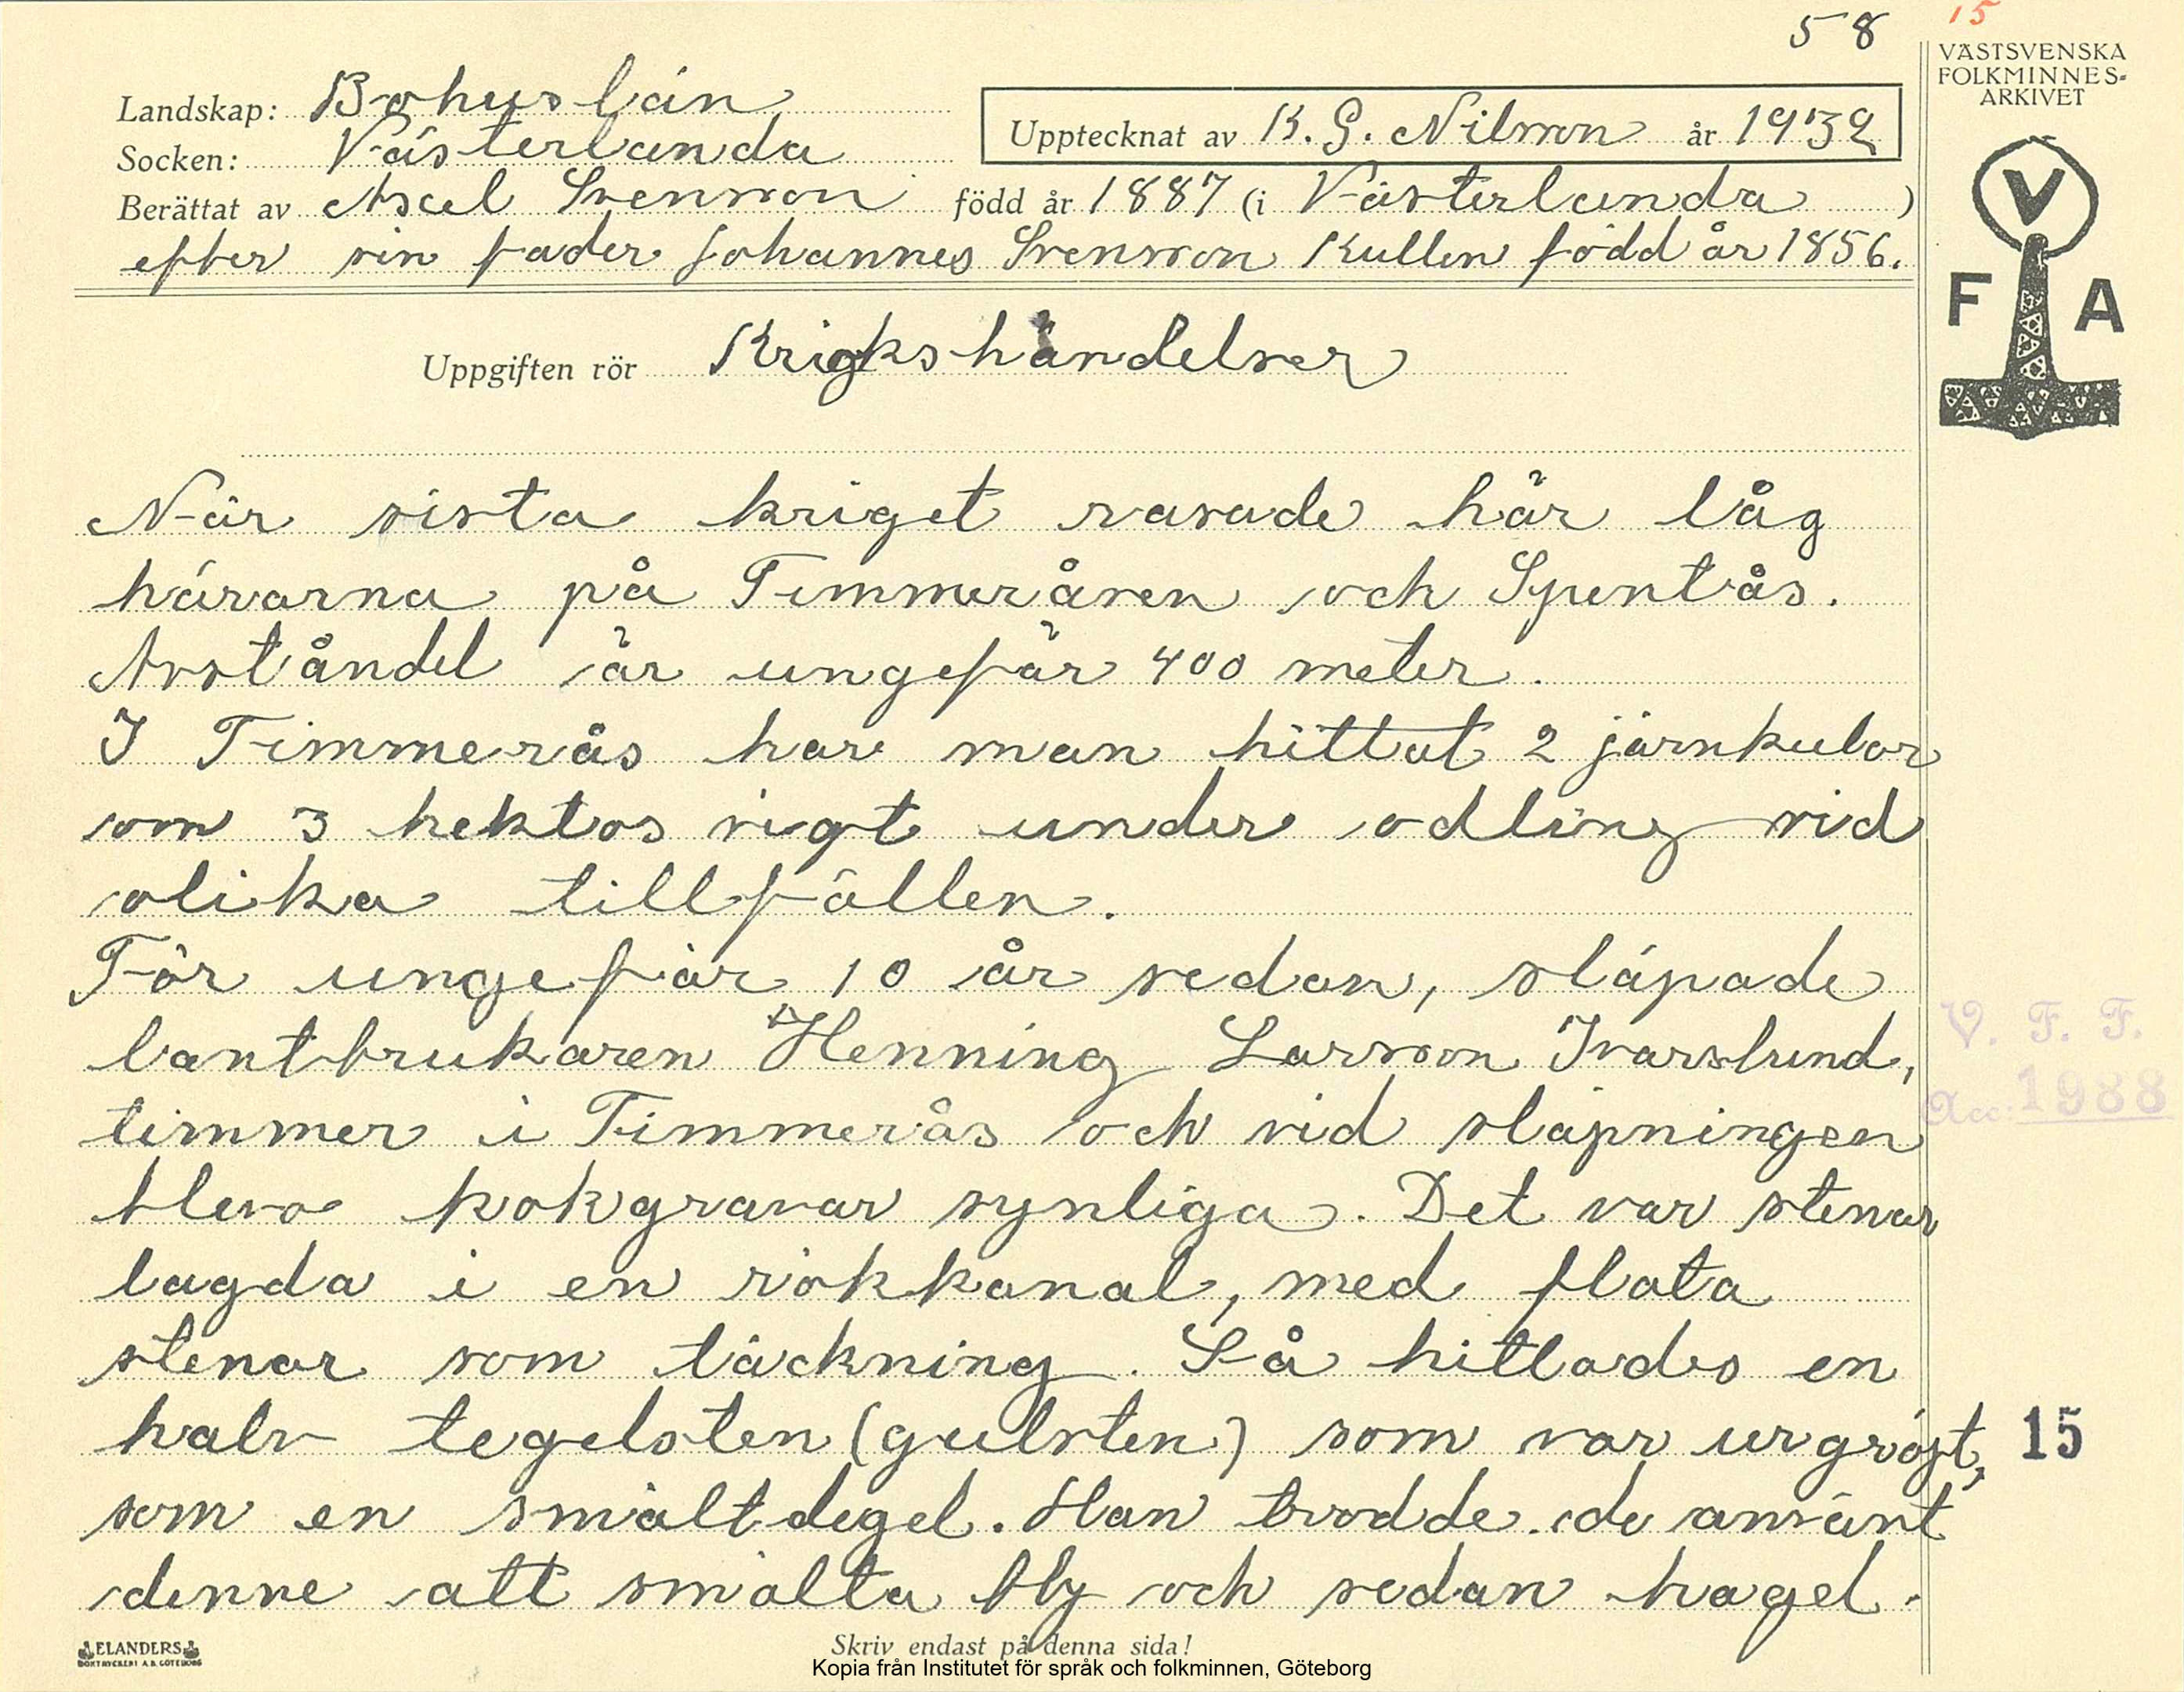 58 15
VÄSTSVENSKA
FOLKMINNES-
ARKIVET
Landskap: Bohuslän
Socken: Västerlanda
Upptecknat av K. G. Nilsson år 1932
Berättat av Axel Svensson född år 1887 (i Västerlanda )
efter sin fader Johannes Svensson Kullen född år 1856.
V
F A
Uppgiften rör Krigshändelser
När sista kriget rasade här låg
härarna på Timmeråsen och Spentås.
Avståndel är ungefär 400 meter.
I Timmerås har man hittat 2 järnkulor
som 3 hektos vigt under odling vid
olika tillfällen.
För ungefär 10 år sedan, släpade
lantbrukaren Henning Larsson Ivarslund,
timmer i Timmerås och vid släpningen
blevo kokgravar synliga. Det var stenar
lagda i en rökkanal, med flata
stenar som täckning. Så hittades en
halv tegelsten (gulsten) som var urgröpt,
som en smältdegel. Han trodde de använt
denne att smälta bly och sedan hagel.
V. F. F.
Acc: 1988
15
ELANDERS
BOKTRYCKERI A.B. GÖTEBORG
Skriv endast på denna sida!
Kopia från Institutet för språk och folkminnen, Göteborg